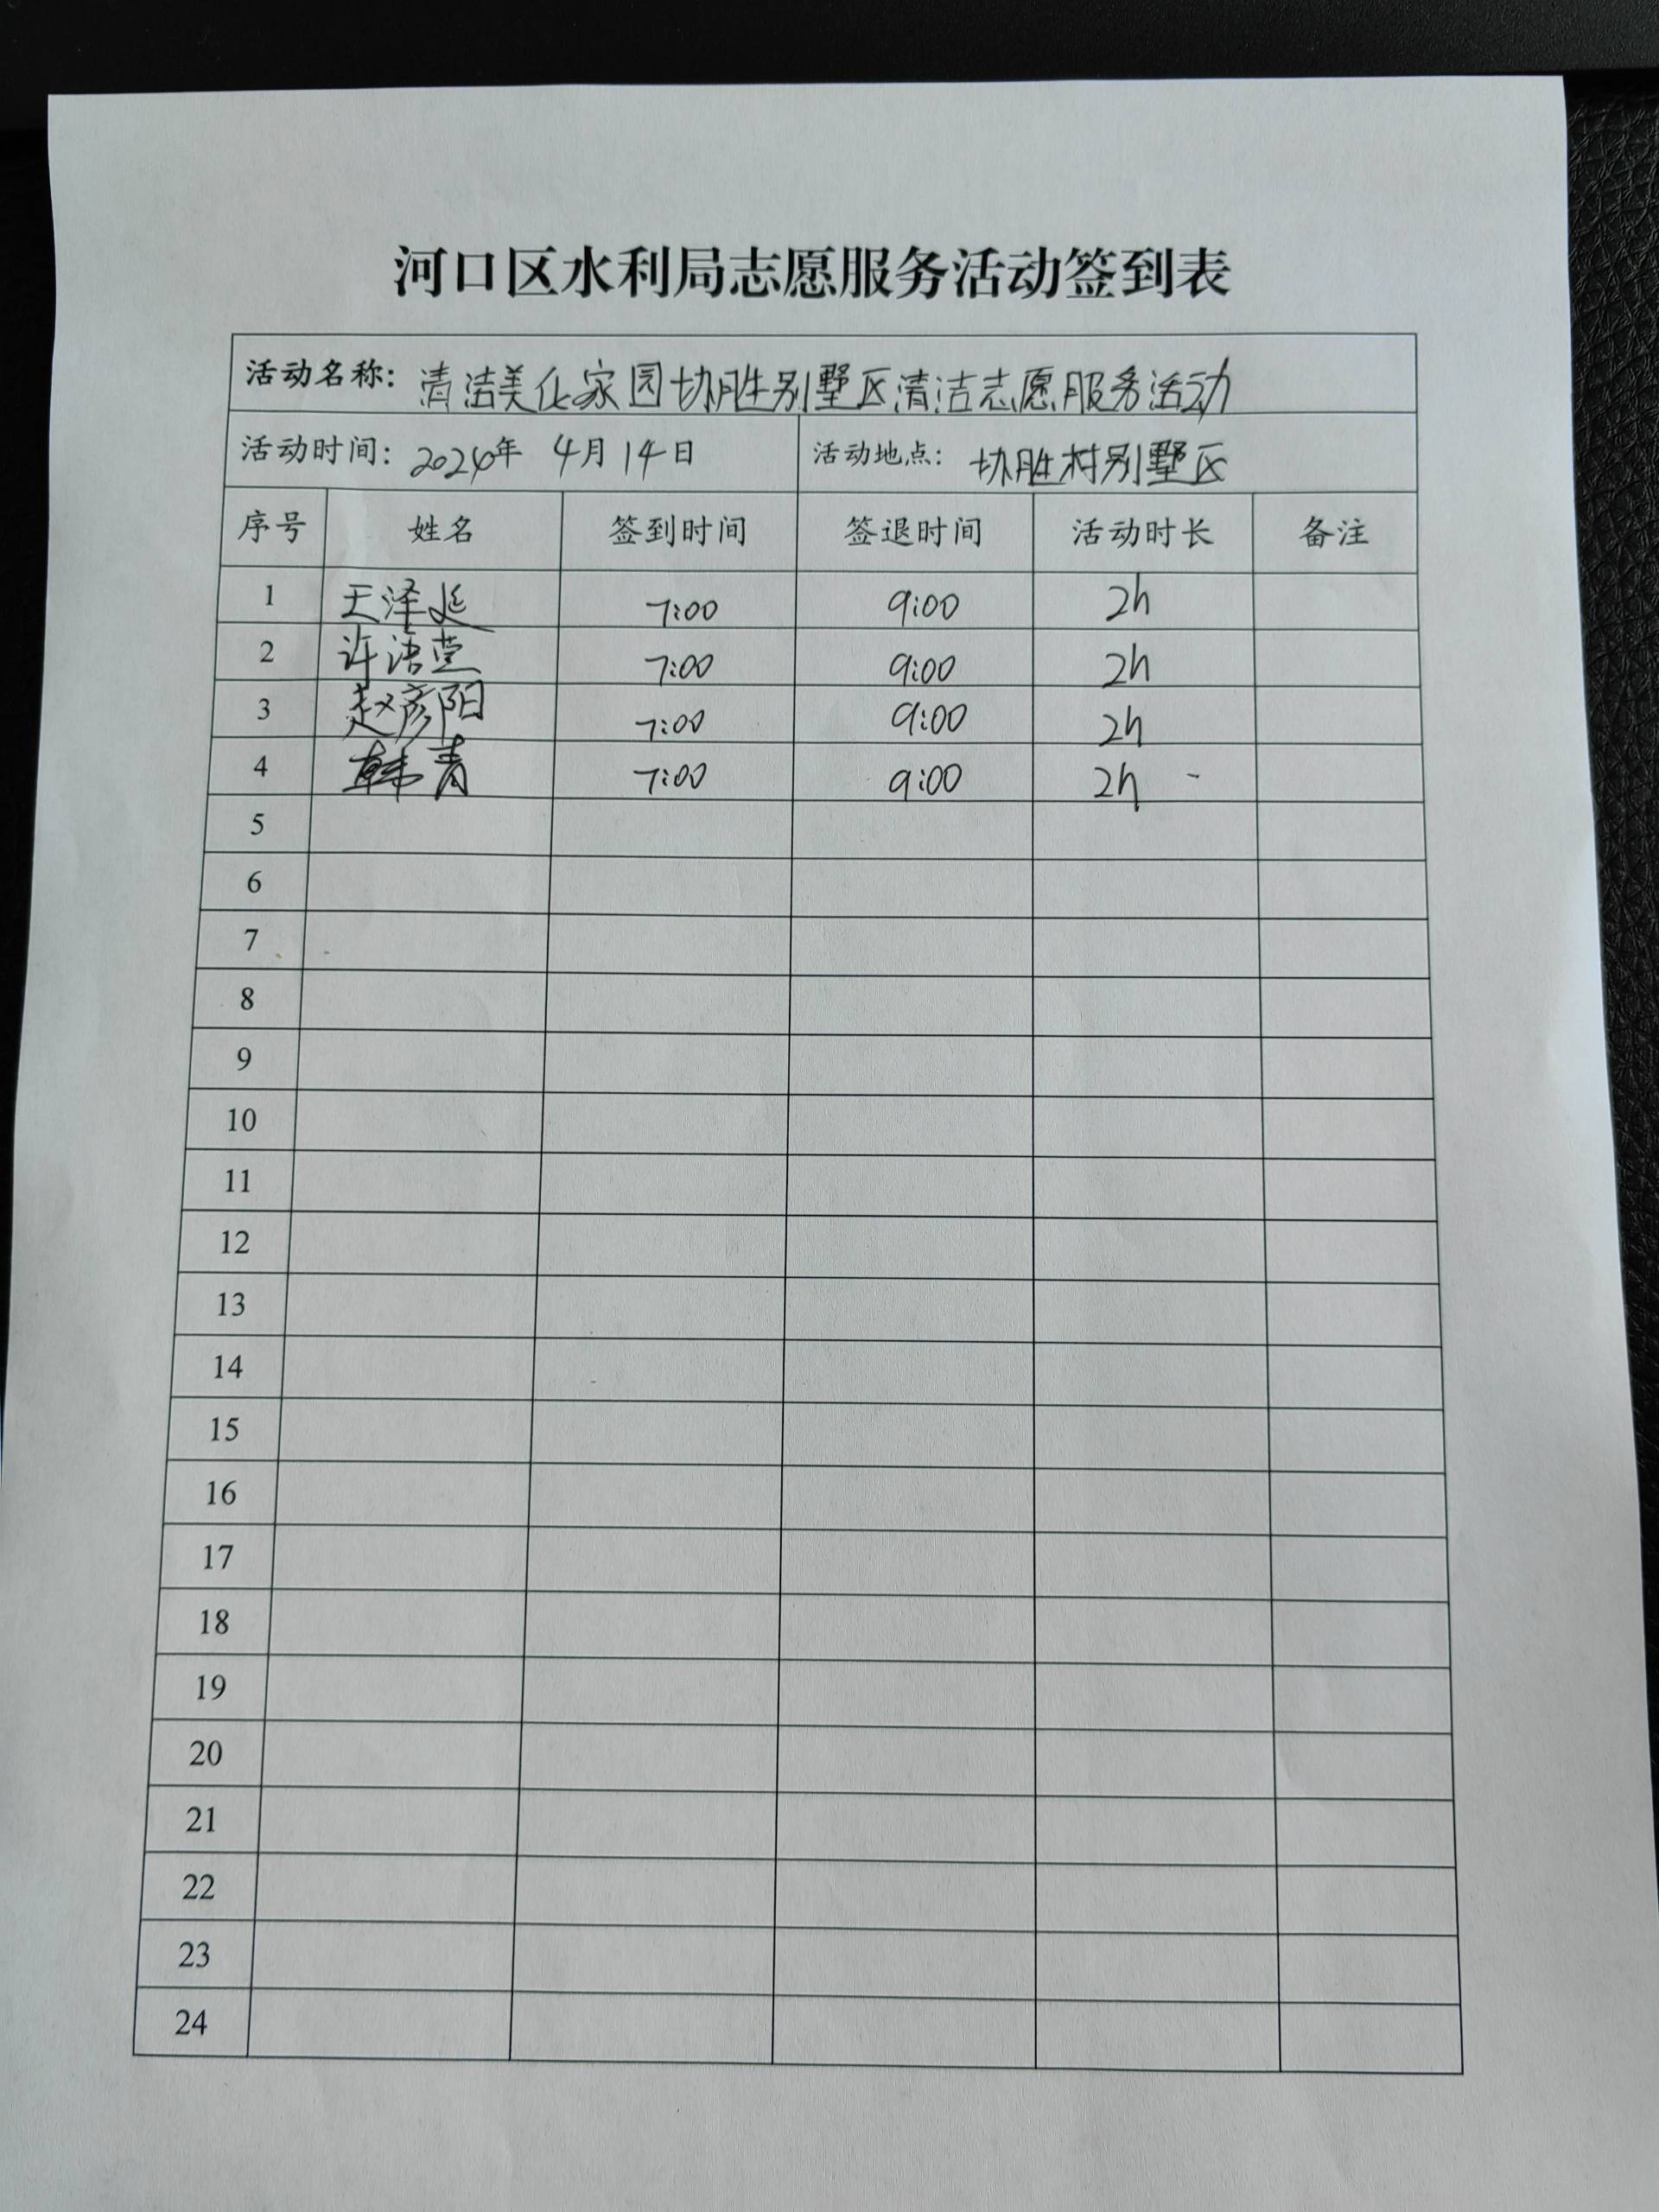 河口区水利局志愿服务活动签到表
活动名称：清洁美化家园协胜别墅区清洁志愿服务活动
活动时间：2024年 4月14日 活动地点：协胜村别墅区
序号 姓名 签到时间 签退时间 活动时长 备注
1 王泽延 7:00 9:00 2h
2 许洁莹 7:00 9:00 2h
3 赵彦阳 7:00 9:00 2h
4 韩青 7:00 9:00 2h
5
6
7
8
9
10
11
12
13
14
15
16
17
18
19
20
21
22
23
24